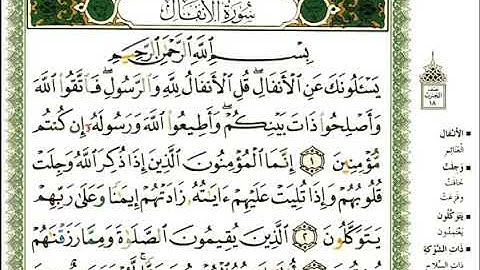 سُورَةُ الأَنفَالِ
بِسْمِ اللَّهِ الرَّحْمَٰنِ الرَّحِيمِ
يَسْـَٔلُونَكَ عَنِ ٱلْأَنفَالِ ۖ قُلِ ٱلْأَنفَالُ لِلَّهِ وَٱلرَّسُولِ ۖ فَٱتَّقُوا۟ ٱللَّهَ
وَأَصْلِحُوا۟ ذَاتَ بَيْنِكُمْ ۖ وَأَطِيعُوا۟ ٱللَّهَ وَرَسُولَهُۥٓ إِن كُنتُم
مُّؤْمِنِينَ ١ إِنَّمَا ٱلْمُؤْمِنُونَ ٱلَّذِينَ إِذَا ذُكِرَ ٱللَّهُ وَجِلَتْ
قُلُوبُهُمْ وَإِذَا تُلِيَتْ عَلَيْهِمْ ءَايَٰتُهُۥ زَادَتْهُمْ إِيمَٰنًا وَعَلَىٰ رَبِّهِمْ
يَتَوَكَّلُونَ ٢ ٱلَّذِينَ يُقِيمُونَ ٱلصَّلَوٰةَ وَمِمَّا رَزَقْنَٰهُمْ
الحزب
١٨
الأَنفَالِ
الغَنَائِمِ
وَجِلَتْ
خَافَتْ
وَفَزِعَتْ
يَتَوَكَّلُونَ
يَعْتَمِدُونَ
ذَاتِ الشَّوْكَةِ
ذَاتِ السِّلَاحِ